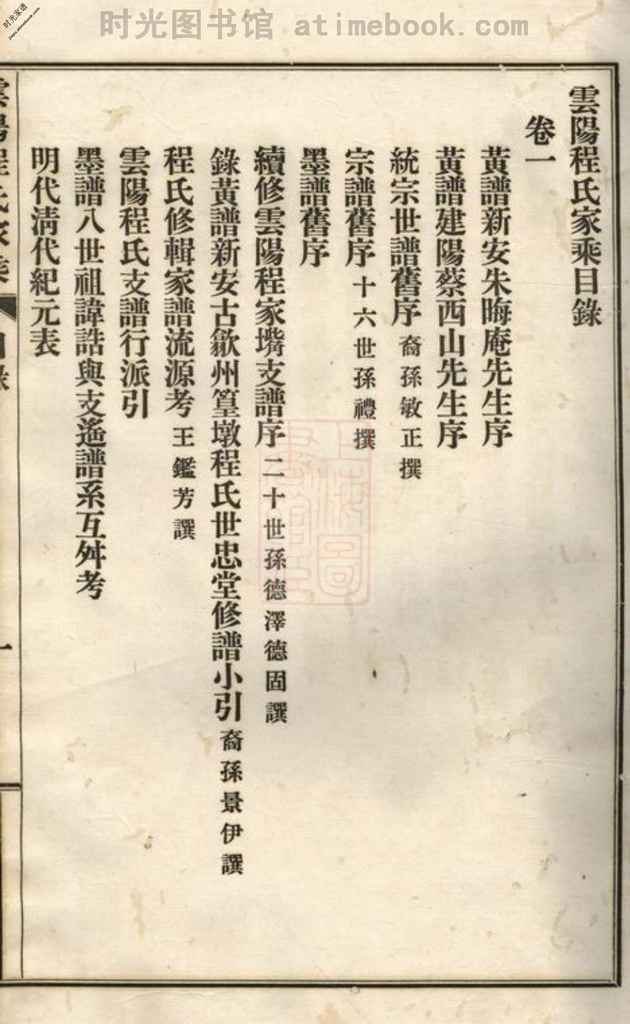 时光图书馆 atimebook.com
时光家谱
雲陽程氏家乘目錄
卷一
黃譜新安朱晦庵先生序
黃譜建陽蔡西山先生序
統宗世譜舊序 裔孫敏正撰
宗譜舊序 十六世孫禮撰
墨譜舊序
續修雲陽程家塝支譜序 二十世孫德澤德固譔
錄黃譜新安古歙州篁墩程氏世忠堂修譜小引 裔孫景伊譔
程氏修輯家譜流源考 王鑑芳譔
雲陽程氏支譜行派引
墨譜八世祖諱誥與支遙譜系互舛考
明代淸代紀元表
雲陽程氏家乘
目錄
一